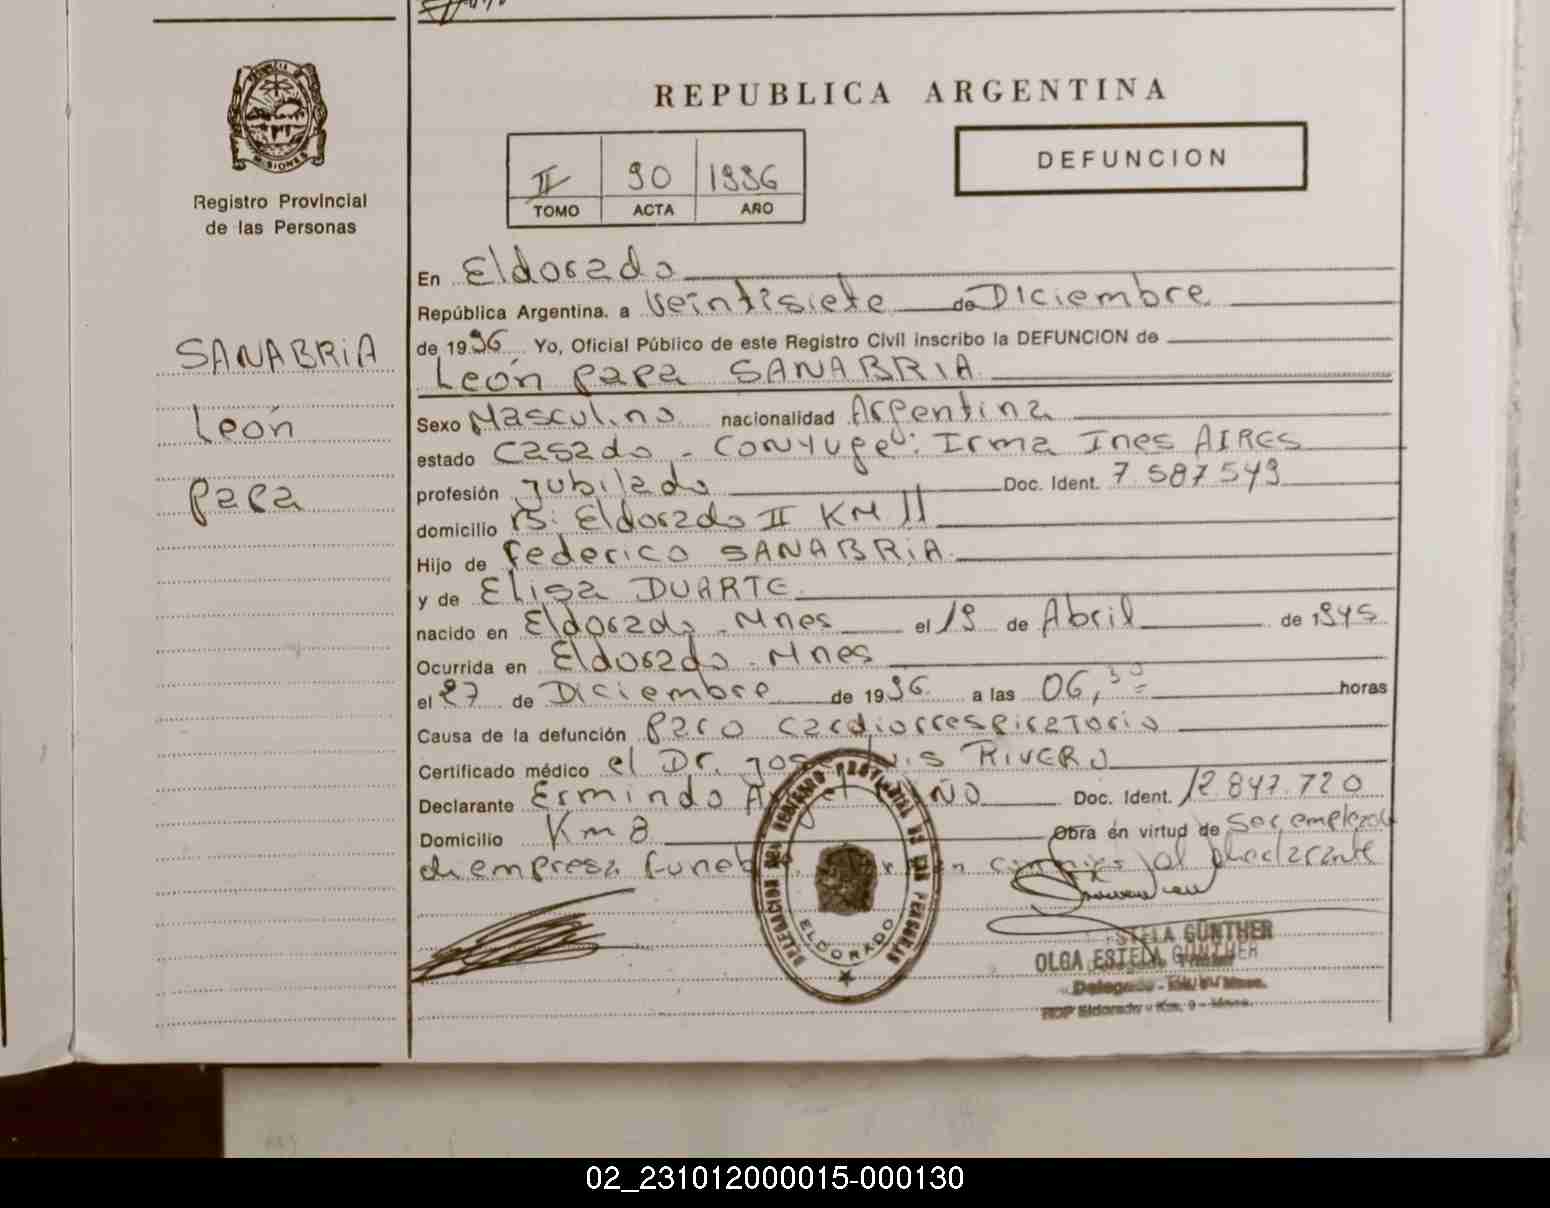 PROVINCIA DE
MISIONES
Registro Provincial
de las Personas
SANABRIA
León
Papa
REPUBLICA ARGENTINA
II 90 1996
TOMO ACTA AÑO
DEFUNCION
En Eldorado
República Argentina. a Veintisiete de Diciembre
de 1996 Yo, Oficial Público de este Registro Civil inscribo la DEFUNCION de
León Papa SANABRIA
Sexo Masculino nacionalidad Argentina
estado Casado - Conyuge: Irma Ines AIRES
profesión Jubilado Doc. Ident. 7.587.549
domicilio B: Eldorado II KM 11
Hijo de Federico SANABRIA
y de Elisa DUARTE
nacido en Eldorado - Mnes el 19 de Abril de 1945
Ocurrida en Eldorado - Mnes
el 27 de Diciembre de 1996 a las 06,30 horas
Causa de la defunción Paro Cardiorrespiratorio
Certificado médico el Dr. José Luis RIVERO
Declarante Ermindo Doc. Ident. 12.847.720
Domicilio Km 8 Obra en virtud de Ser empleado
de empresa funebre, al declarante
DELEGACION DEL REGISTRO PROVINCIAL DE LAS PERSONAS
ELDORADO
ESTELA GÜNTHER
OLGA ESTELA GÜNTHER
Delegado
RDP Eldorado - Km. 9 - Mnes.
02_231012000015-000130